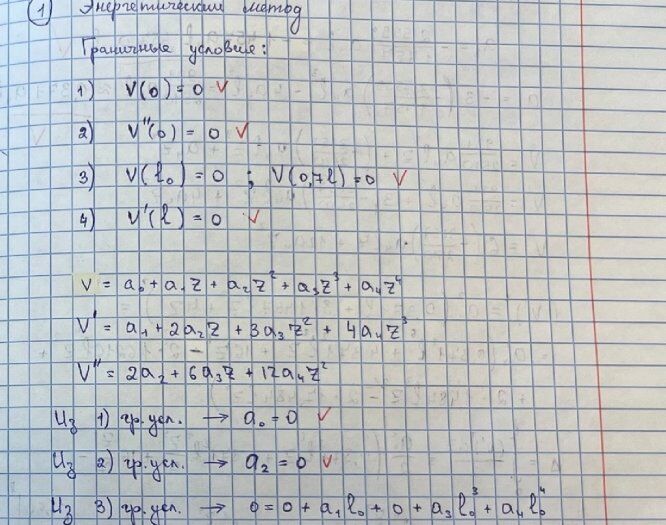 1 Энергетический метод
Граничные условие:
1) V(0) = 0 V
2) V''(0) = 0 V
3) V(l₀) = 0 ; V(0,7l) = 0 V
4) V'(l) = 0 V
V = a₀ + a₁z + a₂z² + a₃z³ + a₄z⁴
V' = a₁ + 2a₂z + 3a₃z² + 4a₄z³
V'' = 2a₂ + 6a₃z + 12a₄z²
Из 1) гр.усл. → a₀ = 0 V
Из 2) гр.усл. → a₂ = 0 V
Из 3) гр.усл. → 0 = 0 + a₁l₀ + 0 + a₃l₀³ + a₄l₀⁴